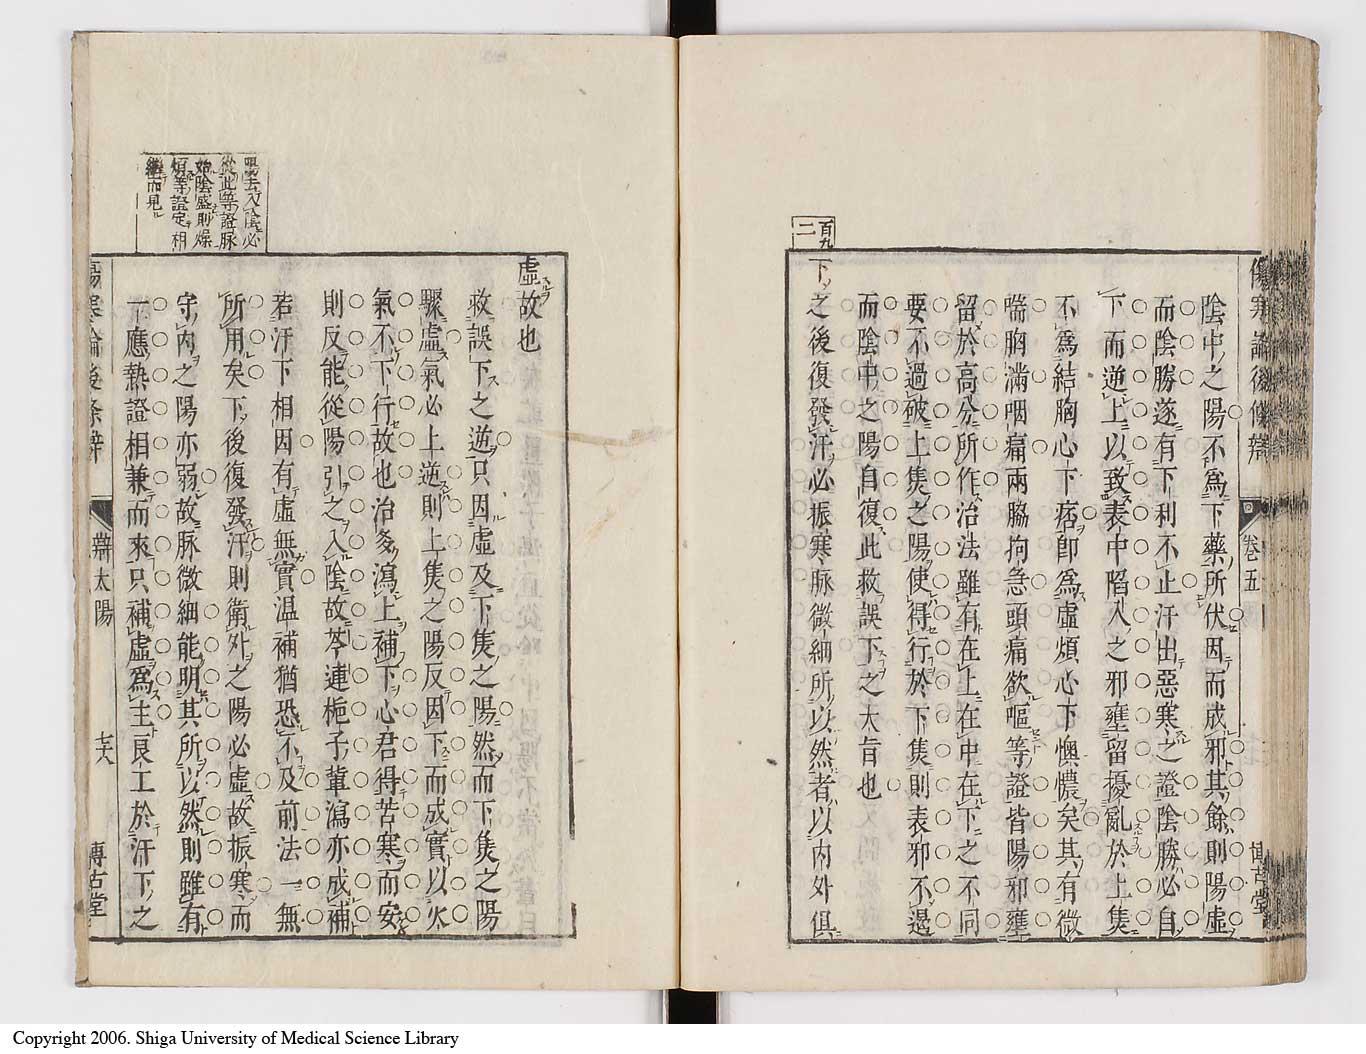 傷寒論後條辨
卷五
博古堂
陰中之陽不爲下藥所伏因而成邪其餘則陽虛
而陰勝遂有下利不止汗出惡寒之證陰勝必自
下而逆上以致表中陷入之邪壅留擾亂於上焦
不爲結胸心下痞卽爲虛煩心下懊憹矣其有微
喘胸滿咽痛兩脇拘急頭痛欲嘔等證皆陽邪壅
留於高分所作治法雖有在上在中在下之不同
要不過破上焦之陽使得行於下焦則表邪不遏
而陰中之陽自復此救誤下之大旨也
百九二
下之後復發汗必振寒脉微細所以然者以內外俱
虛故也
救誤下之逆只因虛及下焦之陽然而下焦之陽
驟虛氣必上逆則上焦之陽反因下而成實以火
氣不下行故也治多瀉上補下心君得苦寒而安
則反能從陽引之入陰故芩連梔子輩瀉亦成補
若汗下相因有虛無實温補猶恐不及前法一無
所用矣下後復發汗則衛外之陽必虛故振寒而
守內之陽亦弱故脉微細能明其所以然則雖有
一應熱證相兼而來只補虛爲主良工於汗下之
去入陰必
從此等證脉
始陰盛則燥
煩等證定相
繼而見
傷寒論後條辨
辨太陽
七十八
博古堂
Copyright 2006. Shiga University of Medical Science Library